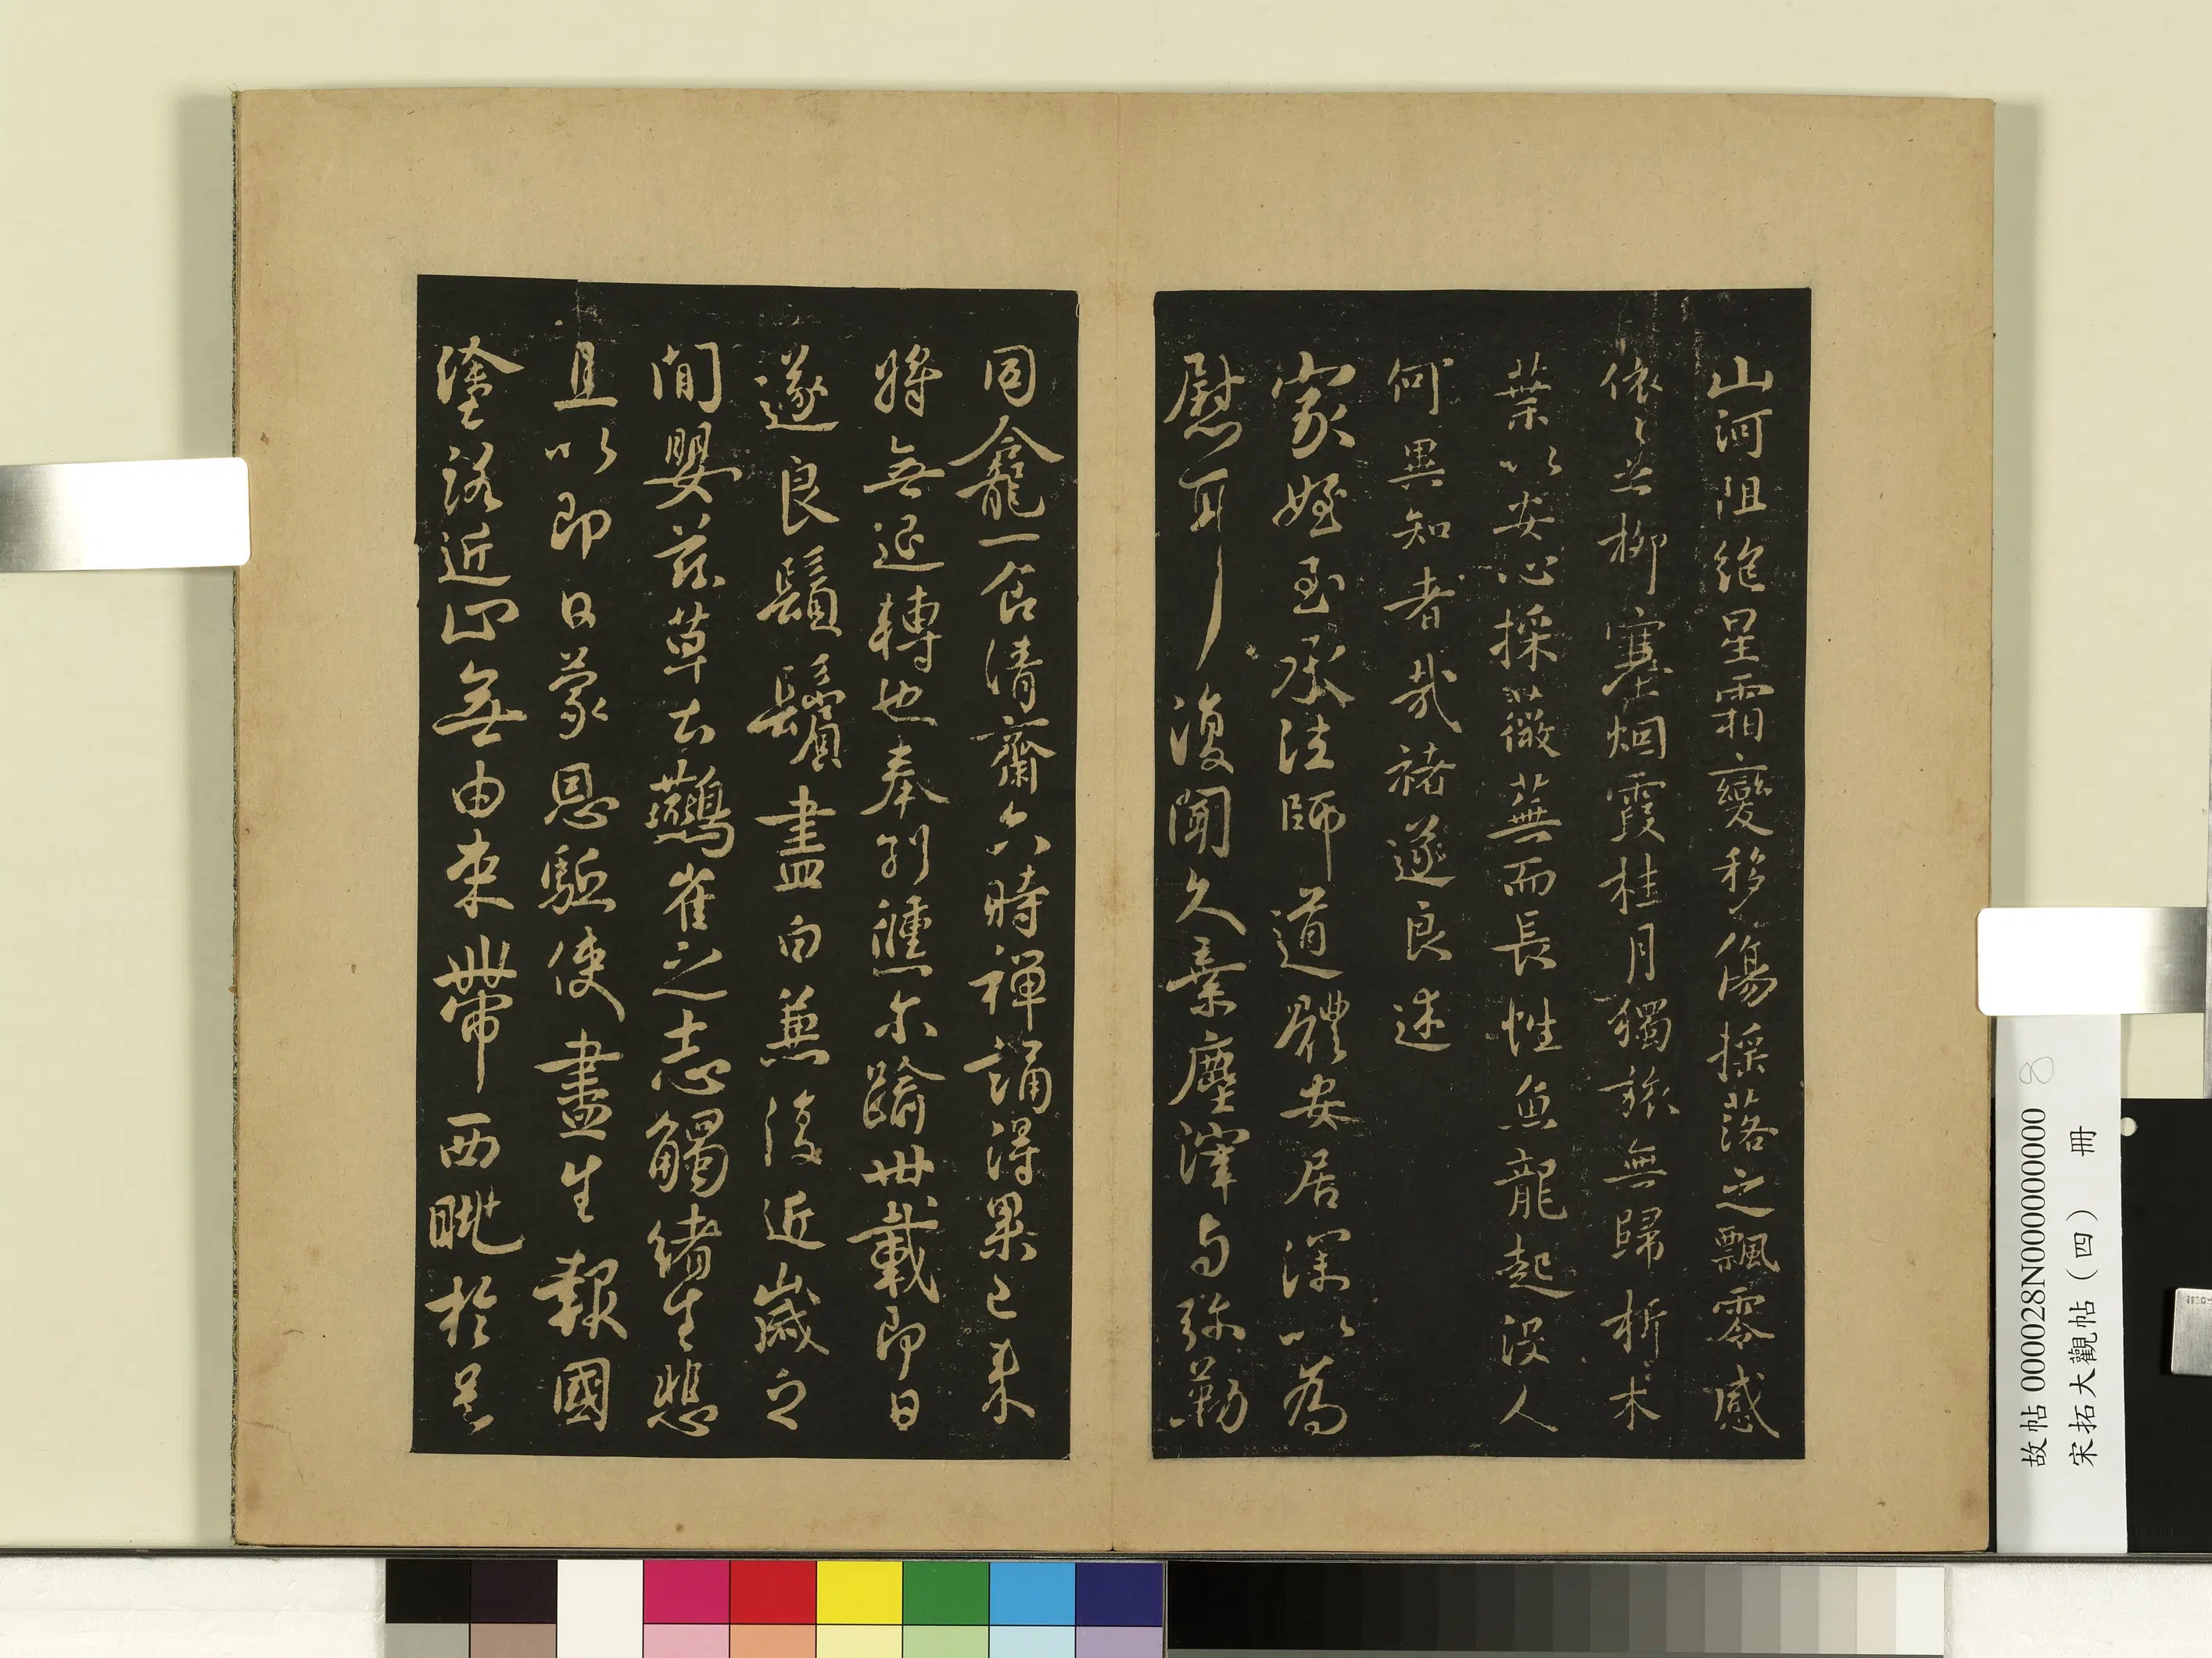 山河阻絕星霜變移傷摇落之飄零感
依々之柳塞烟霞桂月獨旅無歸折木
葉以安心採薇蕪而長性魚龍起沒人
何異知者哉褚遂良述
家姪至承法師道體安居深以為
慰耳復聞久棄塵滓与弥勒
同龕一食清齋六時禪誦得果已來
將無退轉也奉別倏尔踰卅載即日
遂良鬚鬢盡白兼復近歲之
間嬰茲草土鷰雀之志觸緒生悲
且以即日蒙恩駈使盡生報國
塗路近止無由束帶西眺於悒
故帖000028N000000000 8
宋拓大觀帖（四） 冊